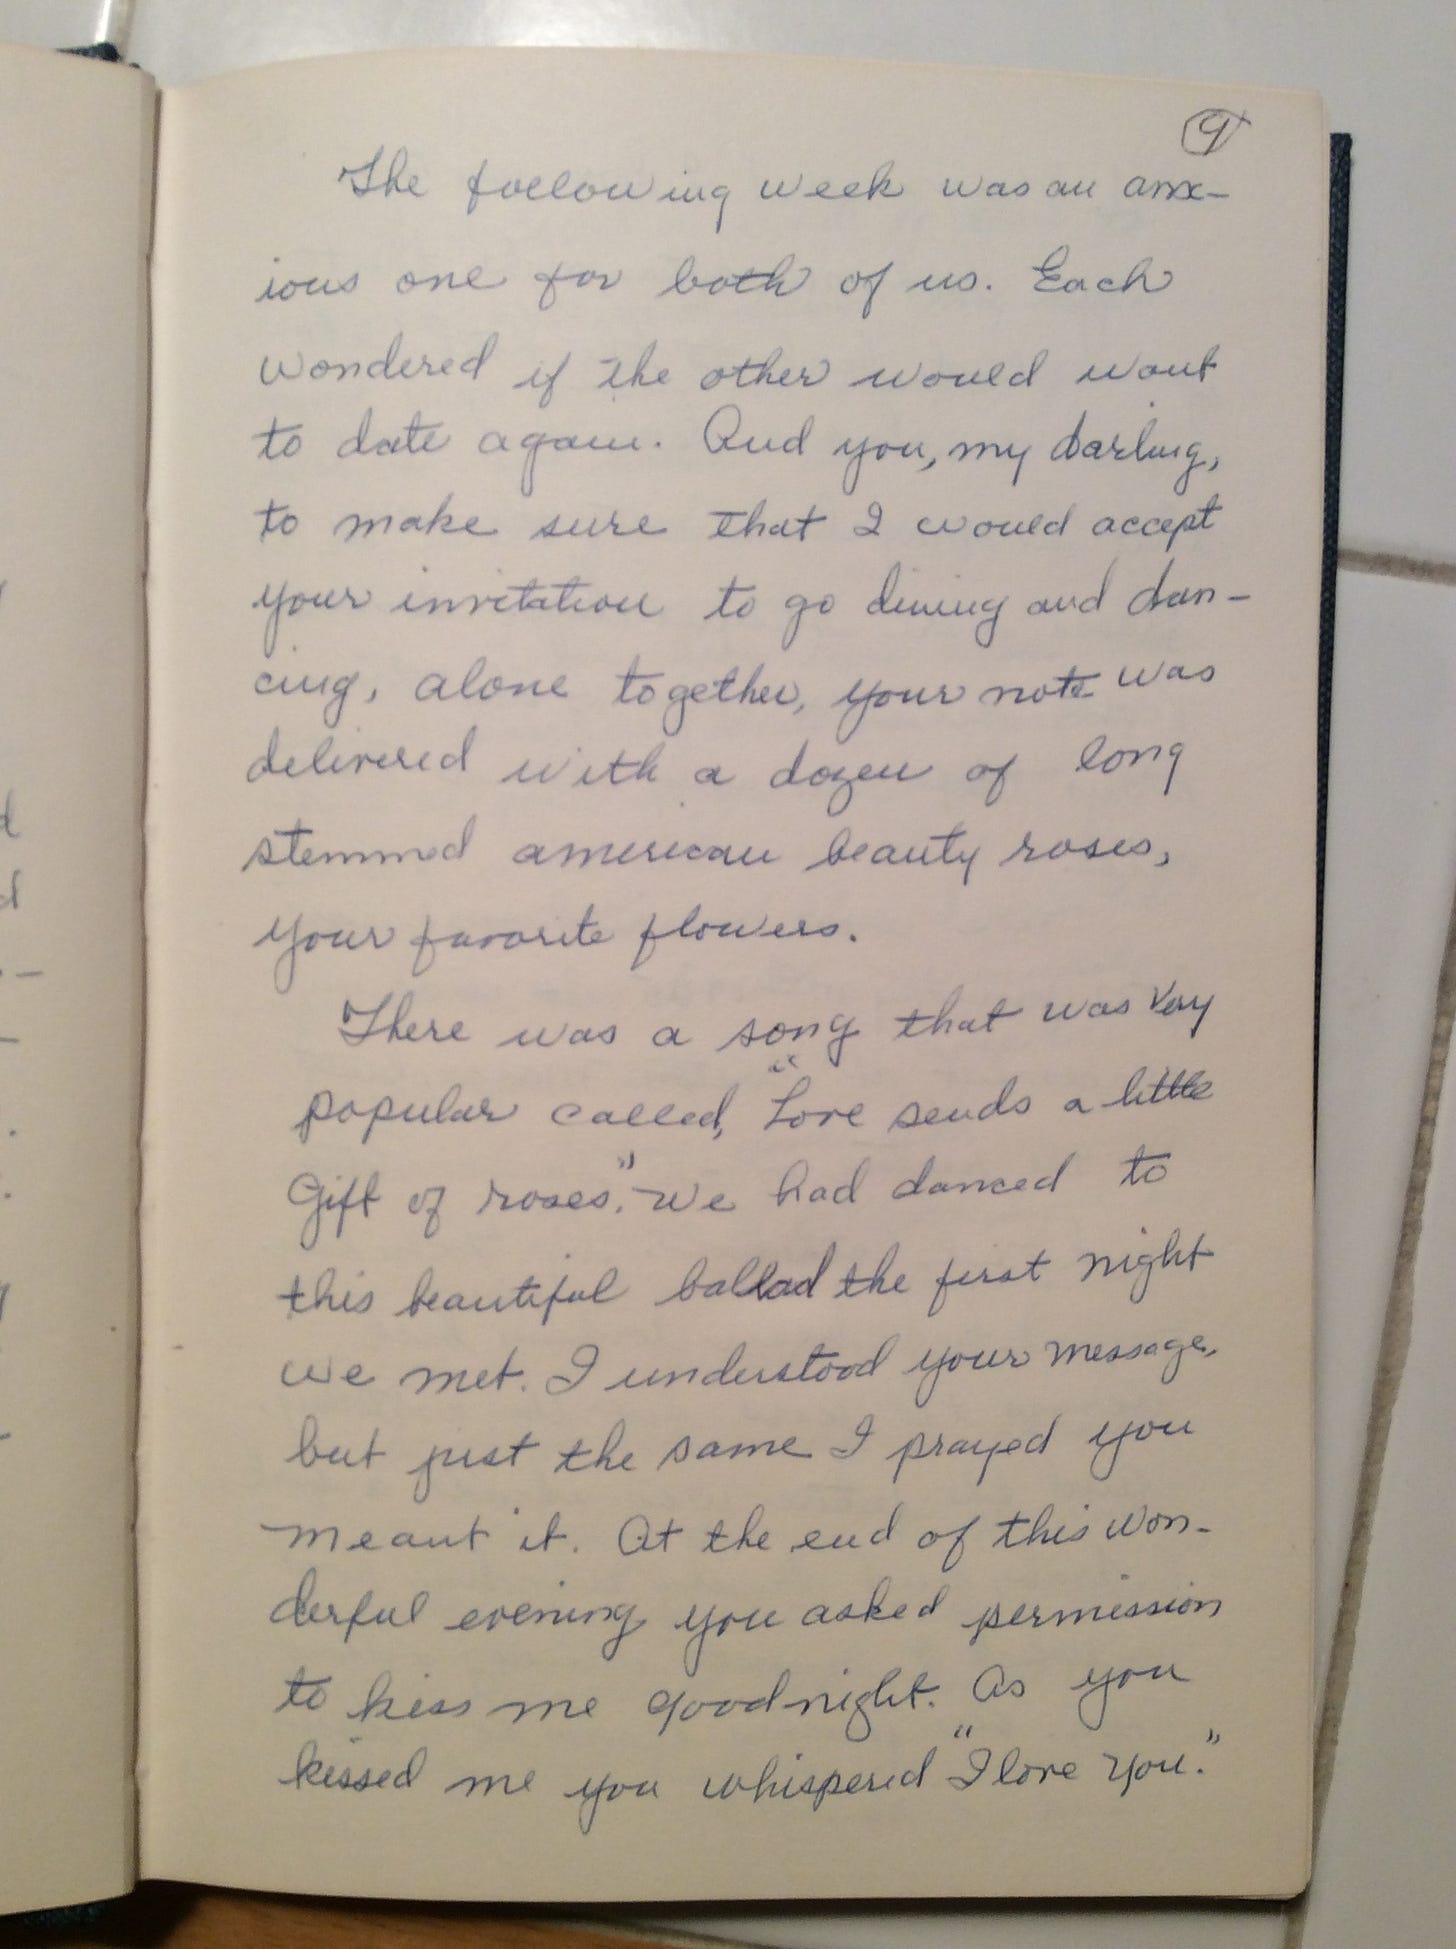 9
The following week was an anx-
ious one for both of us. Each
wondered if the other would want
to date again. And you, my darling,
to make sure that I would accept
your invitation to go dining and dan-
cing, alone together, your note was
delivered with a dozen of long
stemmed american beauty roses,
your favorite flowers.
There was a song that was very
popular called, "Love sends a little
Gift of roses". We had danced to
this beautiful ballad the first night
we met. I understood your message,
but just the same I prayed you
meant it. At the end of this won-
derful evening you asked permission
to kiss me goodnight. As you
kissed me you whispered "I love you."